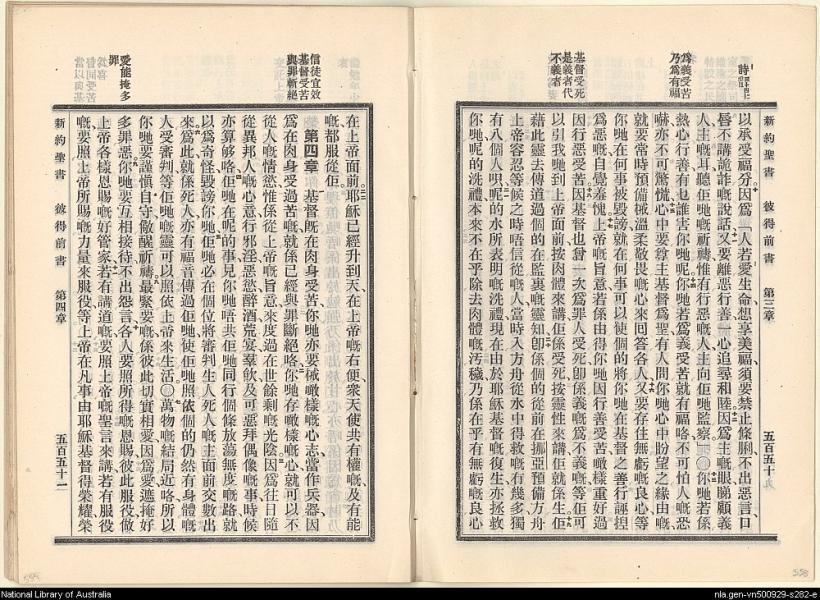 新約聖書 彼得前書 第三章 五百五十
詩
為義受苦
乃為有福
基督受死
是義者代
不義者
以承受福分因為人若愛生命想享美福須要禁止條脷不出惡言口
唇不講詭詐嘅說話又要離惡行善一心追尋和睦因為主嘅眼睇顧義
人主嘅耳聽佢哋嘅祈禱惟有行惡嘅人主向佢哋監察○你哋若係
熱心行善有乜誰害你哋呢你哋若為義受苦就有福咯不可怕人嘅恐
嚇亦不可驚慌心中要尊主基督為聖有人問你哋心中盼望之緣由嘅
就要常時預備械溫柔敬畏嘅心來回答各人又要存住無虧嘅良心等
你哋在何事被毀謗就在何事可以使個的將你哋在基督之善行誣捏
為惡嘅自覺羞愧上帝嘅旨意若係由得你哋因行善受苦噉樣重好過
因行惡受苦因基督也曾一次為罪人受死卽係義嘅為不義嘅等佢可
以引我哋到上帝面前按肉體來講佢係受死按靈性來講佢就係生佢
藉此靈去傳道過個的在監裏嘅靈知卽係個的從前在挪亞預備方舟
上帝容忍等候之時唔信從嘅人當時入方舟從水中得救嘅有幾多獨
有八個人呮呢的水所表明嘅洗禮現在由於耶穌基督嘅復生亦拯救
你哋呢的洗禮本來不在乎除去肉體嘅汚穢乃係在乎有無虧嘅良心
在上帝面前耶穌已經升到天在上帝嘅右便衆天使共有權嘅及有能
嘅都服從佢
信徒宜效
基督受苦
與罪斷絕
第四章 基督旣在肉身受苦你哋亦要械噉樣嘅心志當作兵器因
為在肉身受過苦嘅就係已經與罪斷絕咯你哋存噉樣嘅心就可以不
從人嘅情慾惟係從上帝嘅旨意來度過在世餘剩嘅光陰因為往日隨
從異邦人嘅心意行邪淫惡慾醉酒荒宴羣飮及可惡拜偶像嘅事時候
亦算够咯佢哋在呢的事見你哋唔共佢哋同行個條放蕩無度嘅路就
以為奇怪毀謗你哋佢哋必在個位將審判生人死人嘅主面前交數出
來為此就係死人亦有福音傳過佢哋使佢哋照依個的仍然有身體嘅
人受審判等佢哋嘅靈可以照依上帝來生活○萬物嘅結局近咯所以
你哋要謹慎自守儆醒祈禱最緊要嘅係彼此切實相愛因為愛遮掩好
多罪惡你哋要互相接待不出怨言各人要照所得嘅恩賜彼此服役做
上帝各樣恩賜嘅好管家若有講道嘅要照上帝嘅聖言來講若有服役
嘅要照上帝所賜嘅力量來服役等上帝在凡事由耶穌基督得榮耀榮
愛能掩多
罪
新約聖書 彼得前書 第四章 五百五十一
National Library of Australia
nla.gen-vn500929-s282-e